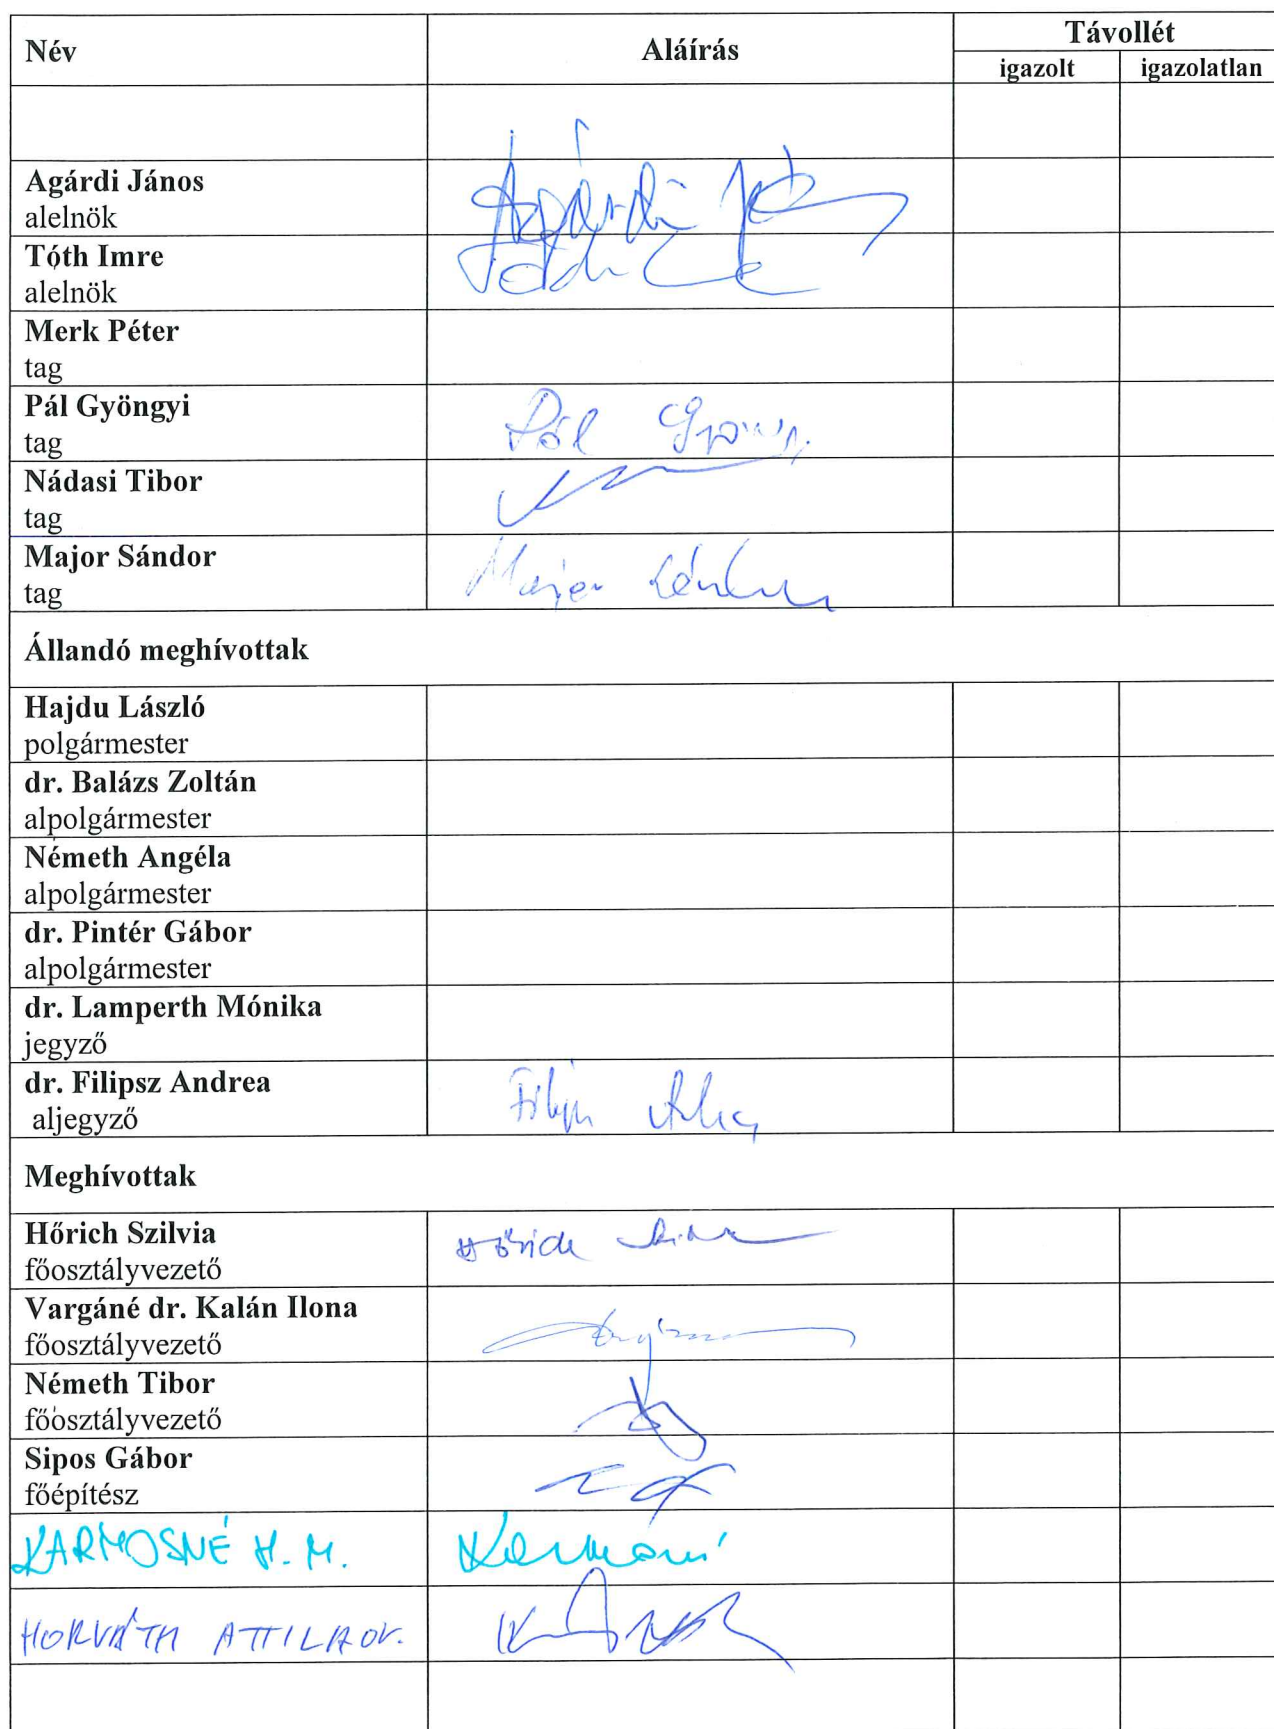 Név Aláírás Távollét
igazolt igazolatlan
Agárdi János
alelnök
Agárdi
Tóth Imre
alelnök
Merk Péter
tag
Pál Gyöngyi
tag
Pál
Nádasi Tibor
tag
Major Sándor
tag
Major
Állandó meghívottak
Hajdu László
polgármester
dr. Balázs Zoltán
alpolgármester
Németh Angéla
alpolgármester
dr. Pintér Gábor
alpolgármester
dr. Lamperth Mónika
jegyző
dr. Filipsz Andrea
aljegyző
Meghívottak
Hőrich Szilvia
főosztályvezető
Vargáné dr. Kalán Ilona
főosztályvezető
Németh Tibor
főosztályvezető
Sipos Gábor
főépítész
KARMOSNÉ H. M.
HORVÁTH ATTILA OV.